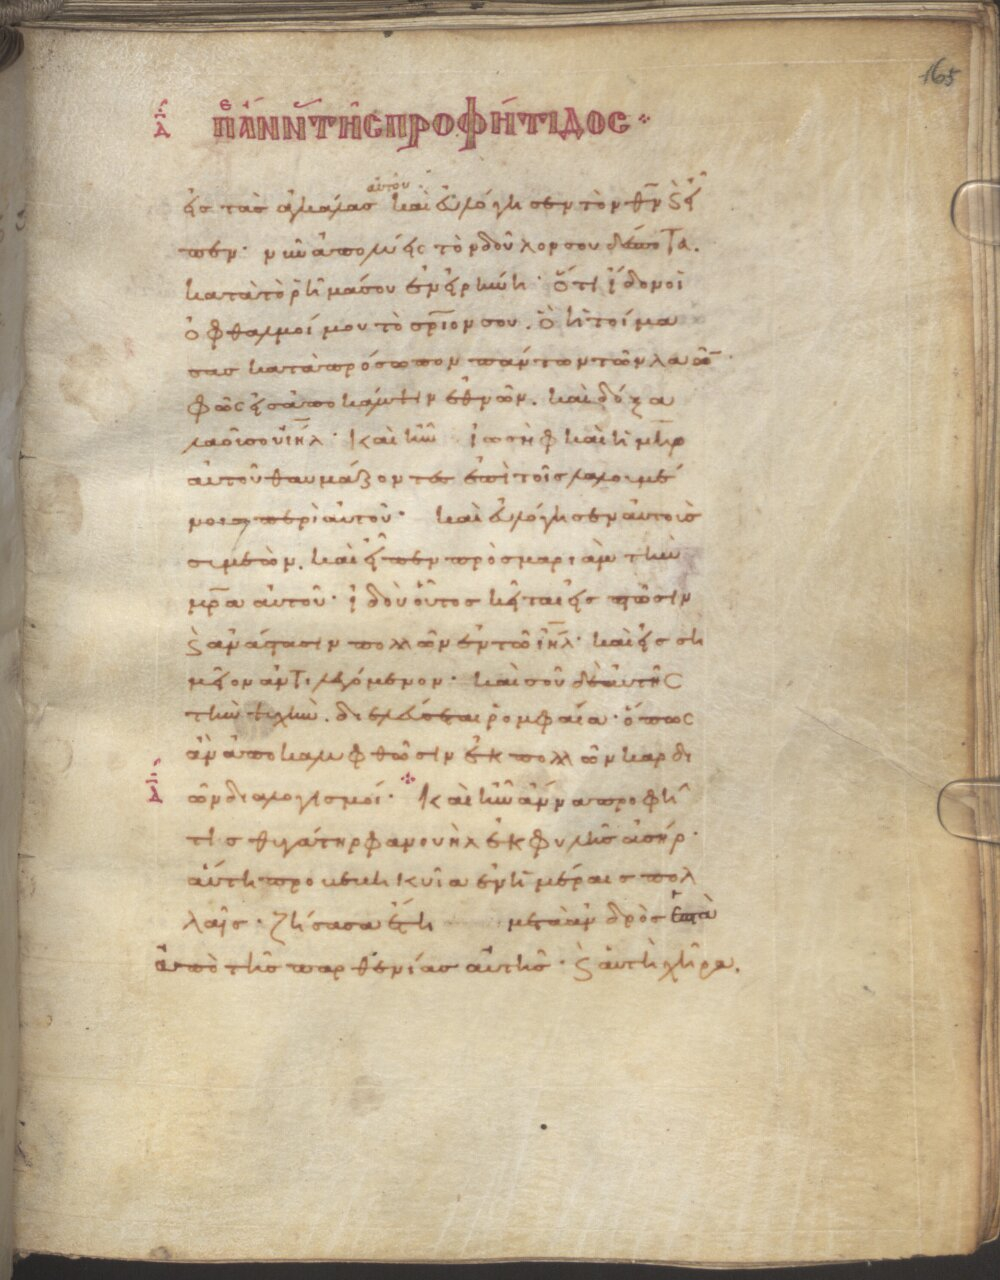 165
δ̅ πε ἄννης τῆς προφήτιδος
εἰς τὰς ἀγκάλας αὐτοῦ· καὶ εὐλόγησεν τὸν θν̅ ϗ εἶ
πεν· νῦν ἀπολύεις τὸν δοῦλον σου δέσποτα.
κατὰ τὸ ῥῆμά σου ἐν εἰρήνη· ὅτι ἴδον οἱ
ὀφθαλμοί μου τὸ σρ̅ιον σου. ὃ ἡτοίμα
σας κατὰ πρόσωπον πάντων τῶν λαῶ̅
φῶς εἰς ἀποκάλυψιν ἐθνῶν. καὶ δόξα
λαοῦ σου ιη̅λ· Καὶ ἦν ἰωσὴφ καὶ ἡ μη̅ρ
αὐτοῦ θαυμάζοντες ἐπὶ τοῖς λαλουμέ
νοις περὶ αὐτοῦ· καὶ εὐλόγησεν αὐτοὺς
συμεὼν. καὶ εἶπεν πρὸς μαριὰμ τὴν
μρ̅α αὐτοῦ· ἰδοὺ οὗτος κεῖται εἰς πτῶσιν
ϗ ἀνάστασιν πολλῶν ἐν τῶ ιη̅λ· καὶ εἰς ση
μεῖον ἀντιλεγόμενον· καὶ σοῦ δὲ αὐτῆς
τὴν ψυχὴν. διελεύσεται ῥομφαία· ὅπως
ἂν ἀποκαλυφθῶσιν ἐκ πολλῶν καρδι
ῶν διαλογισμοί· Καὶ ἦν ἄννα προφῆ
τις θυγάτηρ φανουὴλ ἐκ φυλῆς ἀσήρ·
αὕτη προβεβηκυῖα ἐν ἡμέραις πολ
λαῖς· ζήσασα ἔτη μετὰ ἀνδρὸς ἑπτὰ
ἀπὸ τῆς παρθενίας αὐτῆς· ϗ αὐτὴ χήρα.